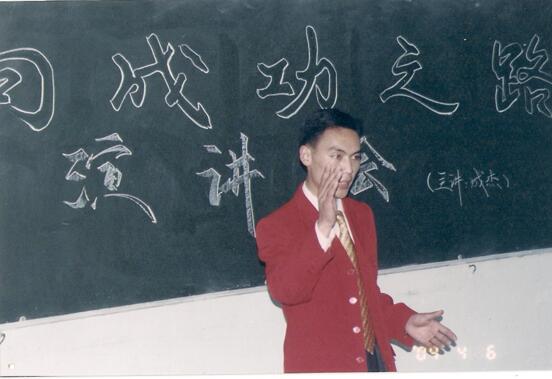 向成功之路
演讲会
(主讲:成杰)
'04 4 6